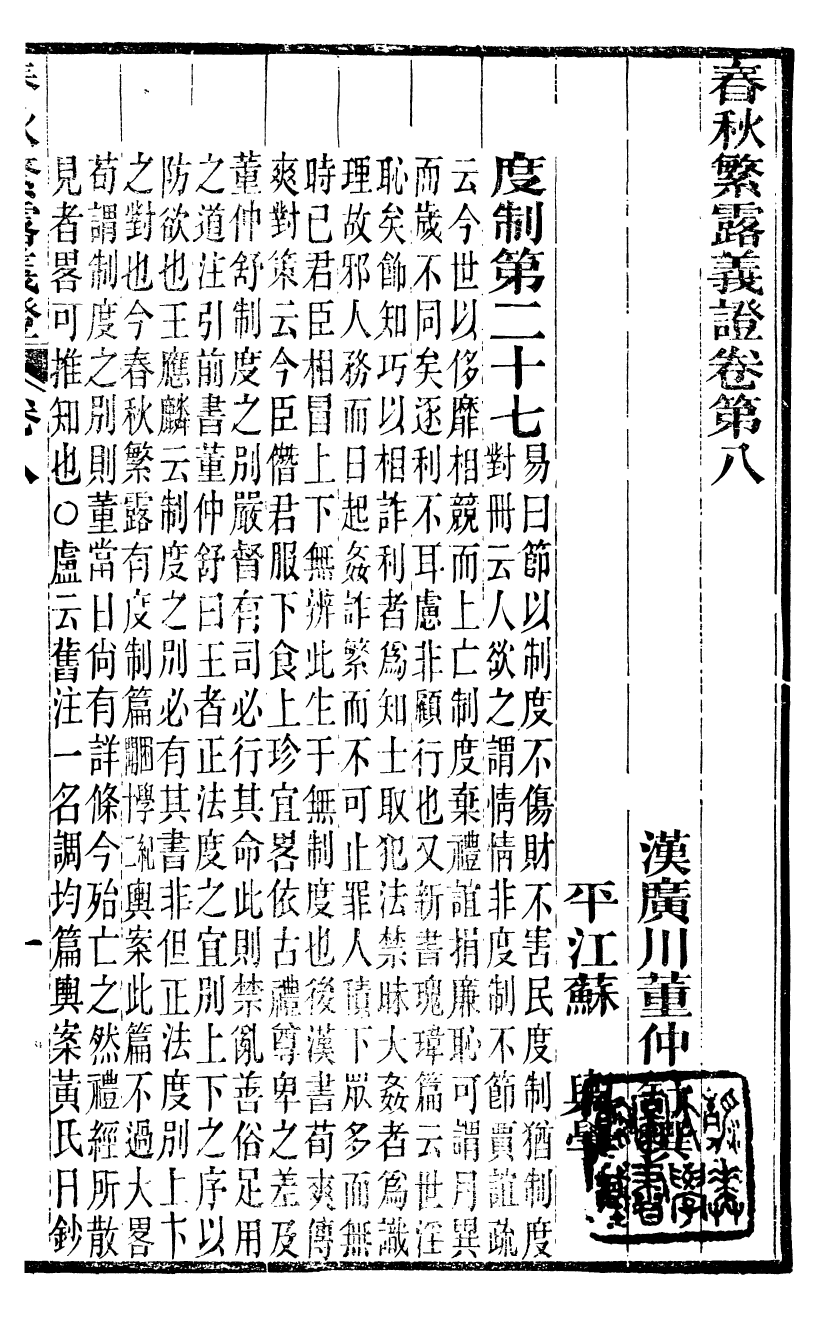 春秋繁露義證卷第八
漢廣川董仲
平江蘇
度制第二十七
易曰節以制度不傷財不害民度制猶制度
對冊云人欲之謂情情非度制不節賈誼疏
云今世以侈靡相競而上亡制度棄禮誼捐廉恥可謂月異
而歲不同矣逐利不耳慮非顧行也又新書瑰瑋篇云世淫
恥矣飾知巧以相詐利者爲知士取犯法禁昧大姦者爲識
理故邪人務而日起姦詐繁而不可止罪人積下眾多而無
時已君臣相冒上下無辨此生于無制度也後漢書荀爽傳
爽對策云今臣僭君服下食上珍宜畧依古禮尊卑之差及
董仲舒制度之別嚴督有司必行其命此則禁亂善俗足用
之道注引前書董仲舒曰王者正法度之宜別上下之序以
防欲也王應麟云制度之別必有其書非但正法度別上下
之對也今春秋繁露有度制篇輿案此篇不過大畧
荀謂制度之別則董當日尚有詳條今殆亡之然禮經所散
見者畧可推知也○盧云舊注一名調均篇輿案黃氏日鈔
春秋繁露義證 卷八 一